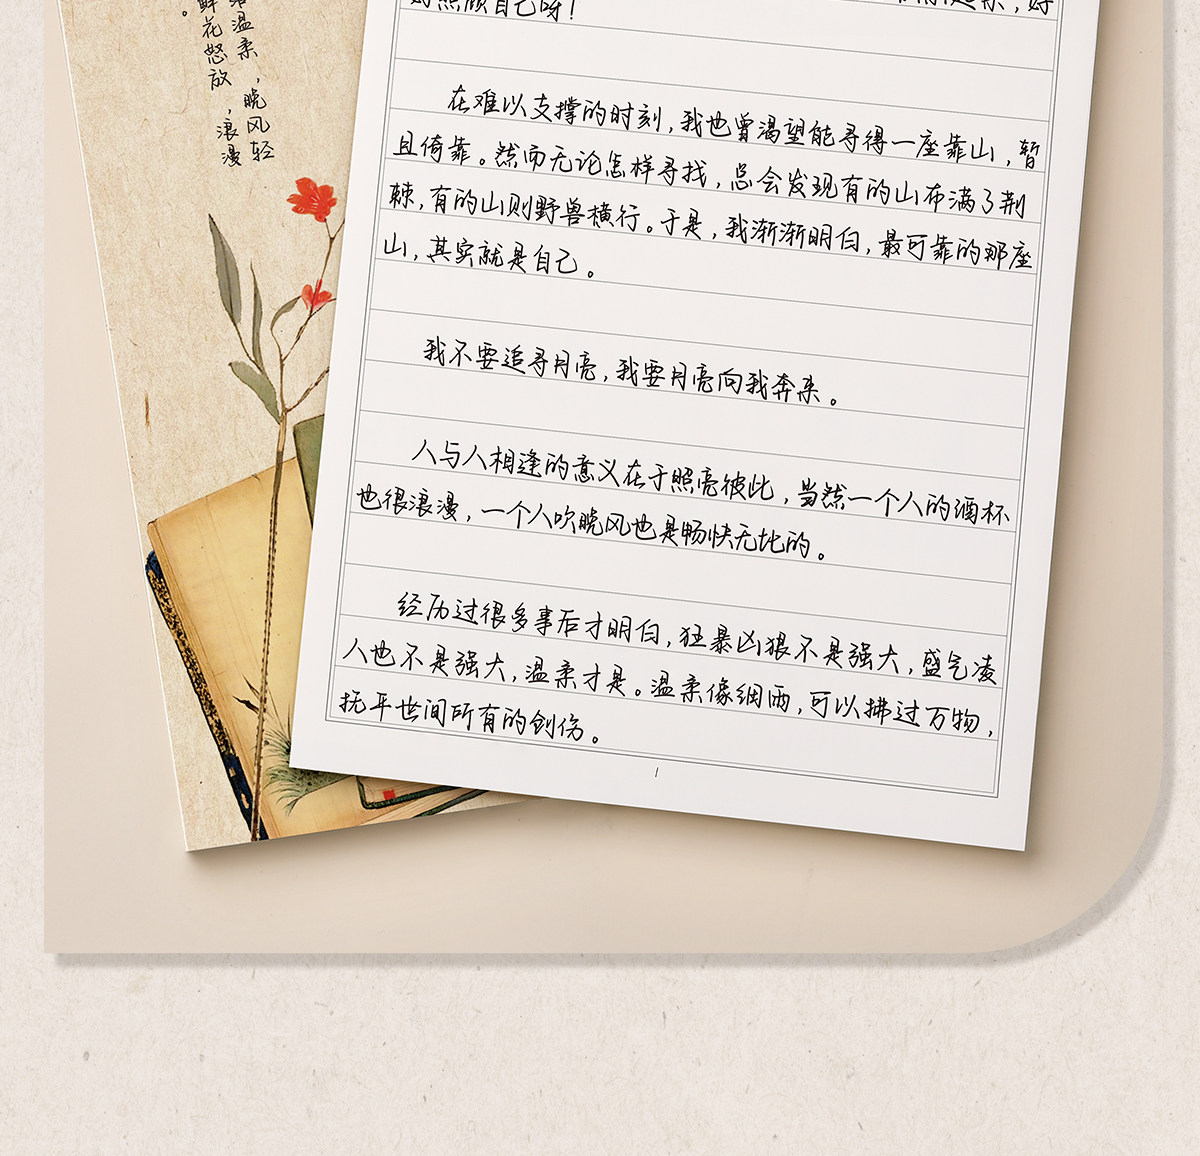 好照顾自己呀！
在难以支撑的时刻，我也曾渴望能寻得一座靠山，暂
且倚靠。然而无论怎样寻找，总会发现有的山布满了荆
棘，有的山则野兽横行。于是，我渐渐明白，最可靠的那座
山，其实就是自己。
我不要追寻月亮，我要月亮向我奔来。
人与人相逢的意义在于照亮彼此，当然一个人的酒杯
也很浪漫，一个人吹晚风也是畅快无比的。
经历过很多事后才明白，狂暴凶狠不是强大，盛气凌
人也不是强大，温柔才是。温柔像细雨，可以拂过万物，
抚平世间所有的创伤。
1
温柔，晚风轻
鲜花怒放，浪漫
。